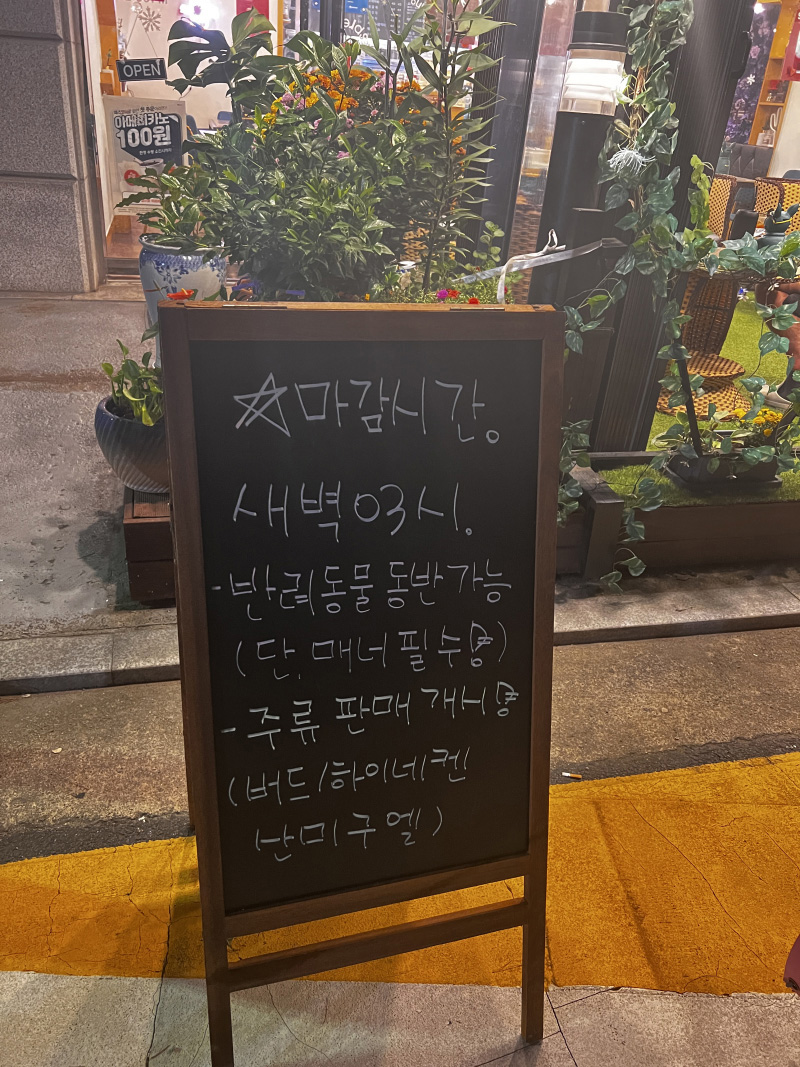 OPEN
아메리카노
100원
☆마감시간.
새벽03시.
-반려동물 동반가능
(단, 매너필수용)
-주류 판매 개시용
(버드/하이네켄
산미구엘)